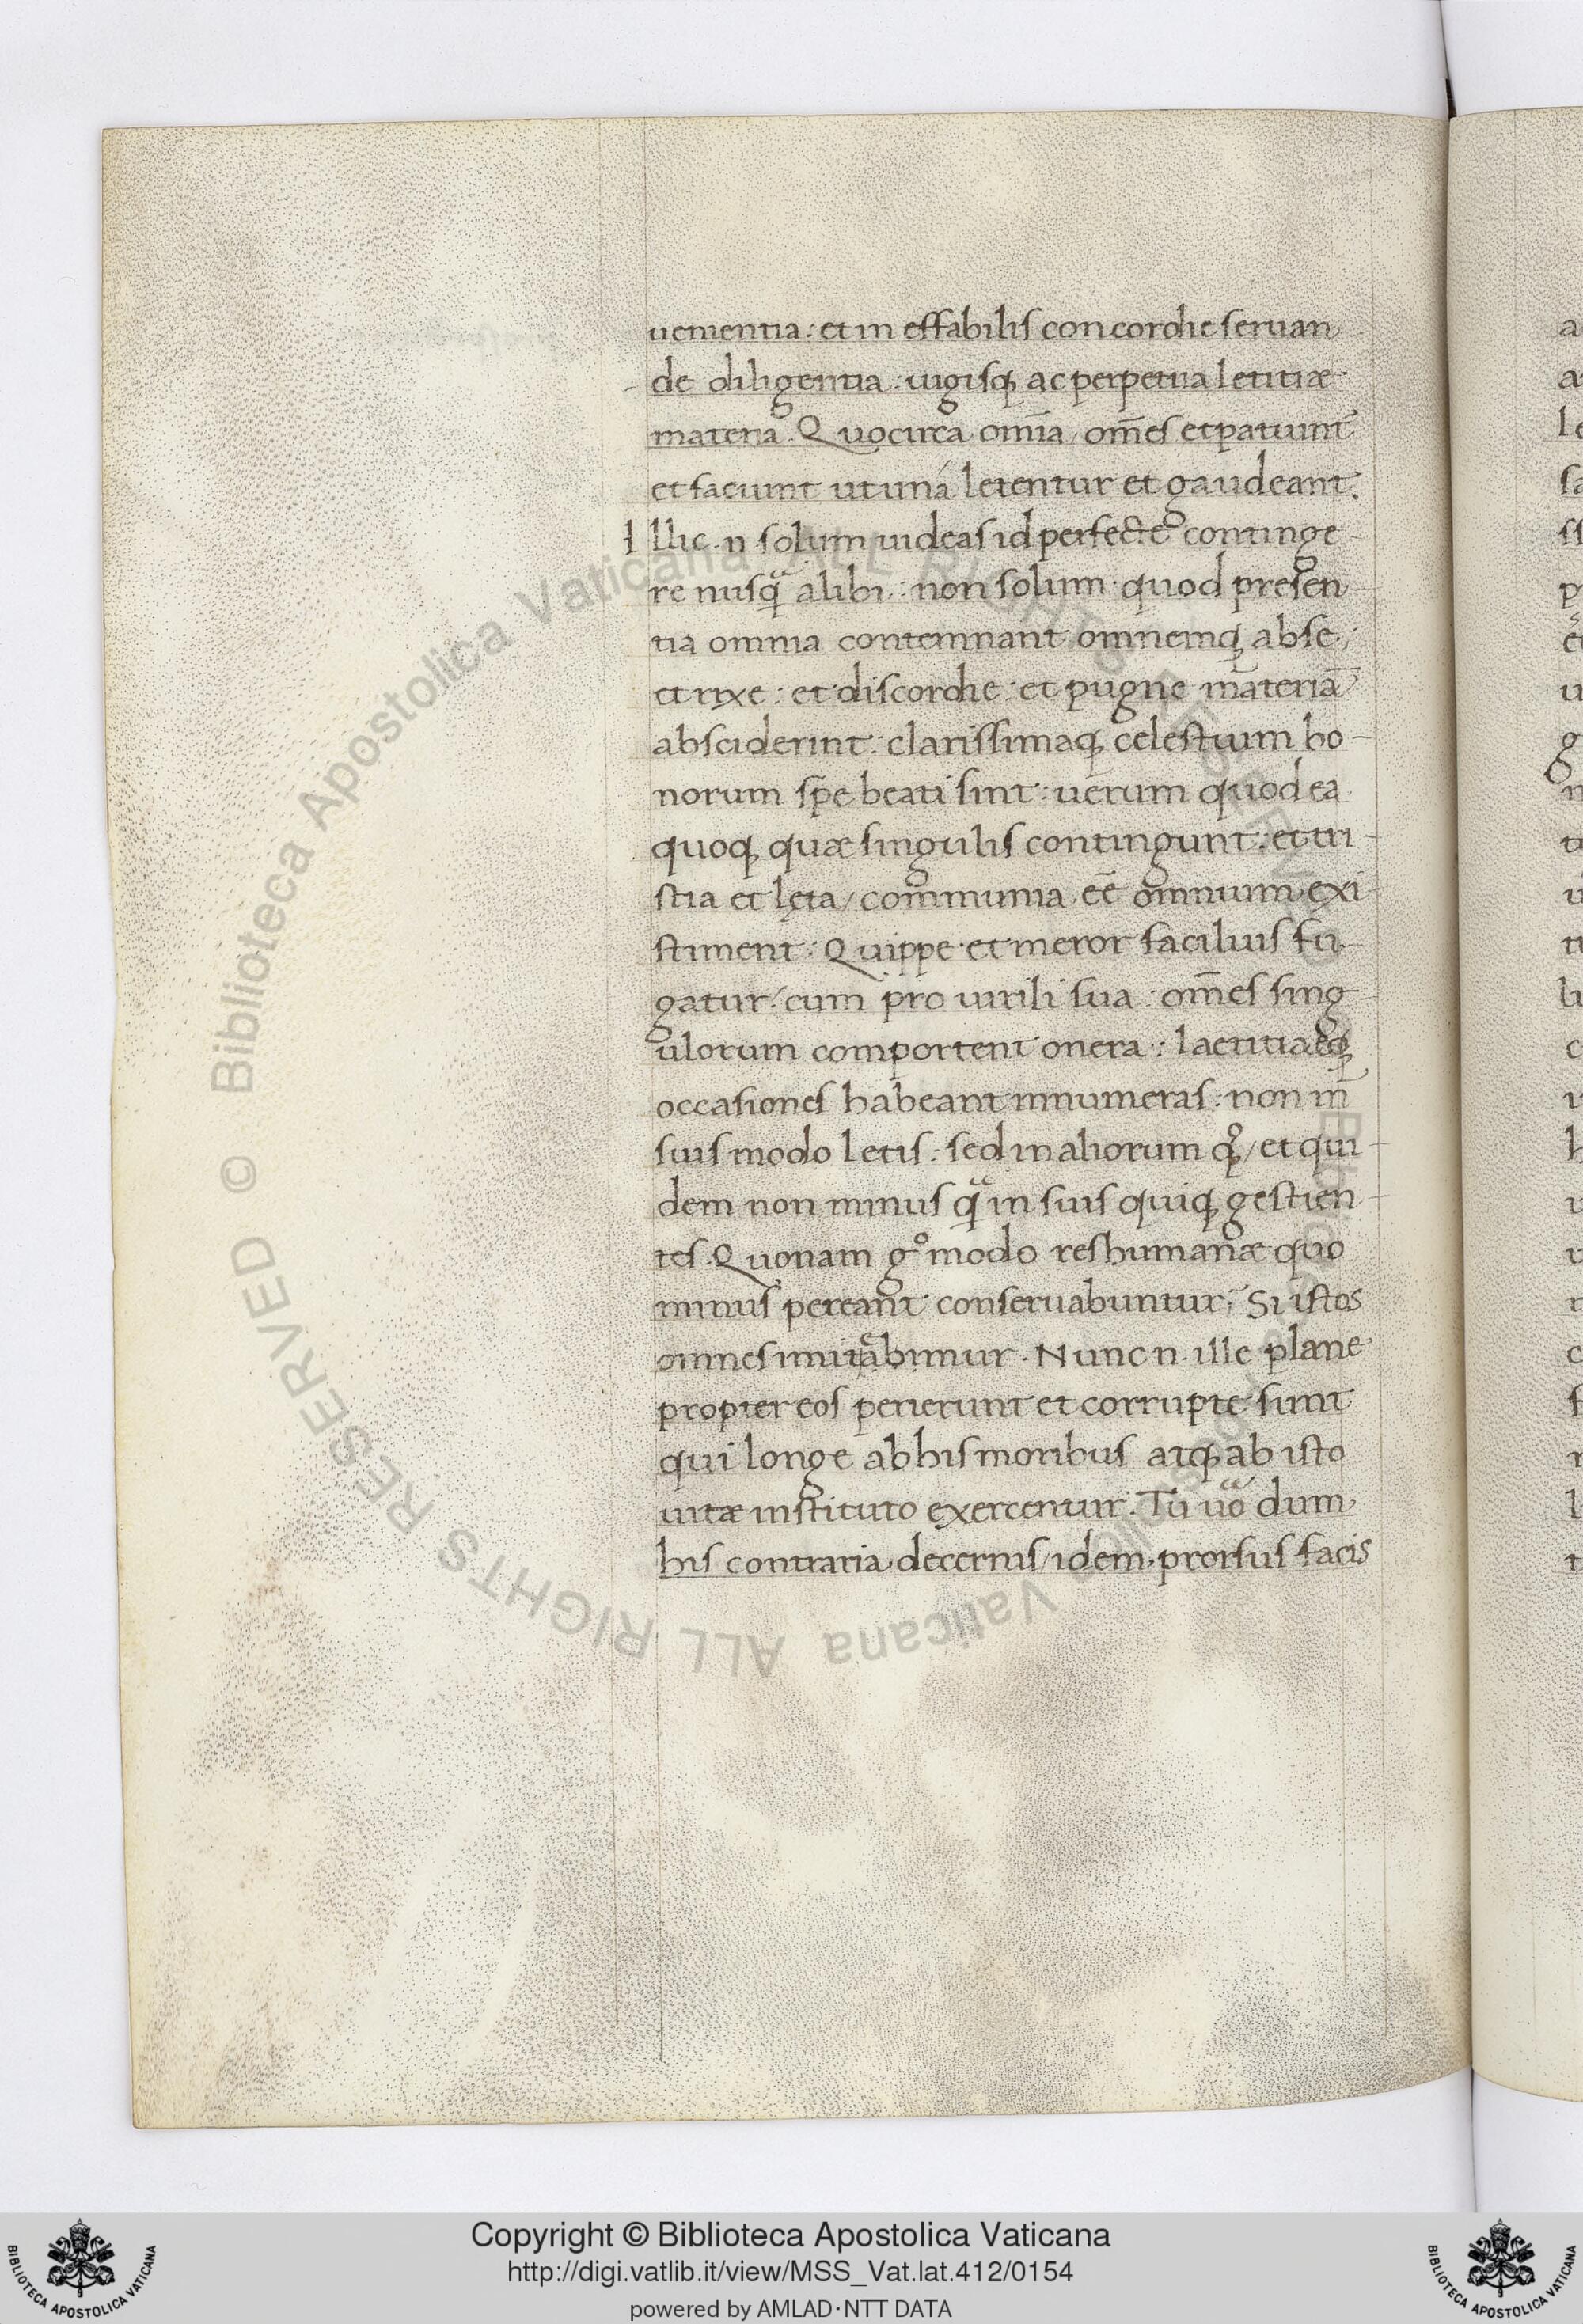 uenientia : et in effabilis con cordie seruan
de diligentia : iugisq ac perpetua letitiæ
materia. Quocirca omīa / om̄es et patiunt̄
et faciunt ut unā letentur et gaudeant.
Illic .n. solum uideas id perfecte continge
re nusq̄ alibi : non solum quod presen
tia omnia contemnant omnemq ab se
et rixe : et discordie : et pugne materiā
absciderint : clarissimaq celestium bo
norum spe beati sint : uerum quod ea
quoq quæ singulis contingunt : et tri
stia et lęta / communia eē omnium exi
stiment : Quippe et meror facilius fu
gatur / cum pro uirili sua : om̄es sing
ulorum comportent onera : laetitiaeq
occasiones habeant innumeras : non in
suis modo letis : sed in aliorum qͦ / et qui
dem non minus q̄ in suis quiq gestien
tes. Quonam gͦ modo res humanæ quo
minus pereant conseruabuntur; Si istos
omnes imitabimur. Nunc .n. ille plane
propter eos perierunt et corrupte sunt
qui longe ab his moribus atq ab isto
uitæ instituto exercentur. Tu uo dum
his contraria decernis / idem prorsus facis
Copyright © Biblioteca Apostolica Vaticana
http://digi.vatlib.it/view/MSS_Vat.lat.412/0154
powered by AMLAD·NTT DATA